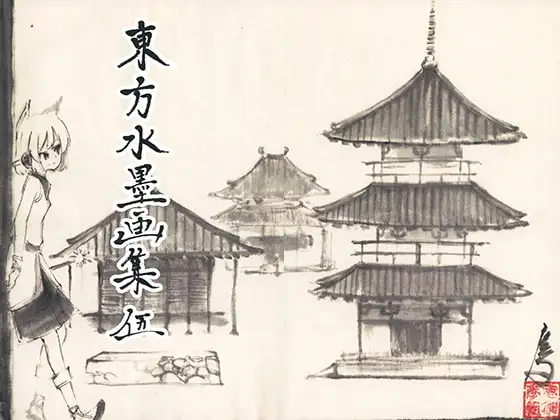 東方水墨画集 伍